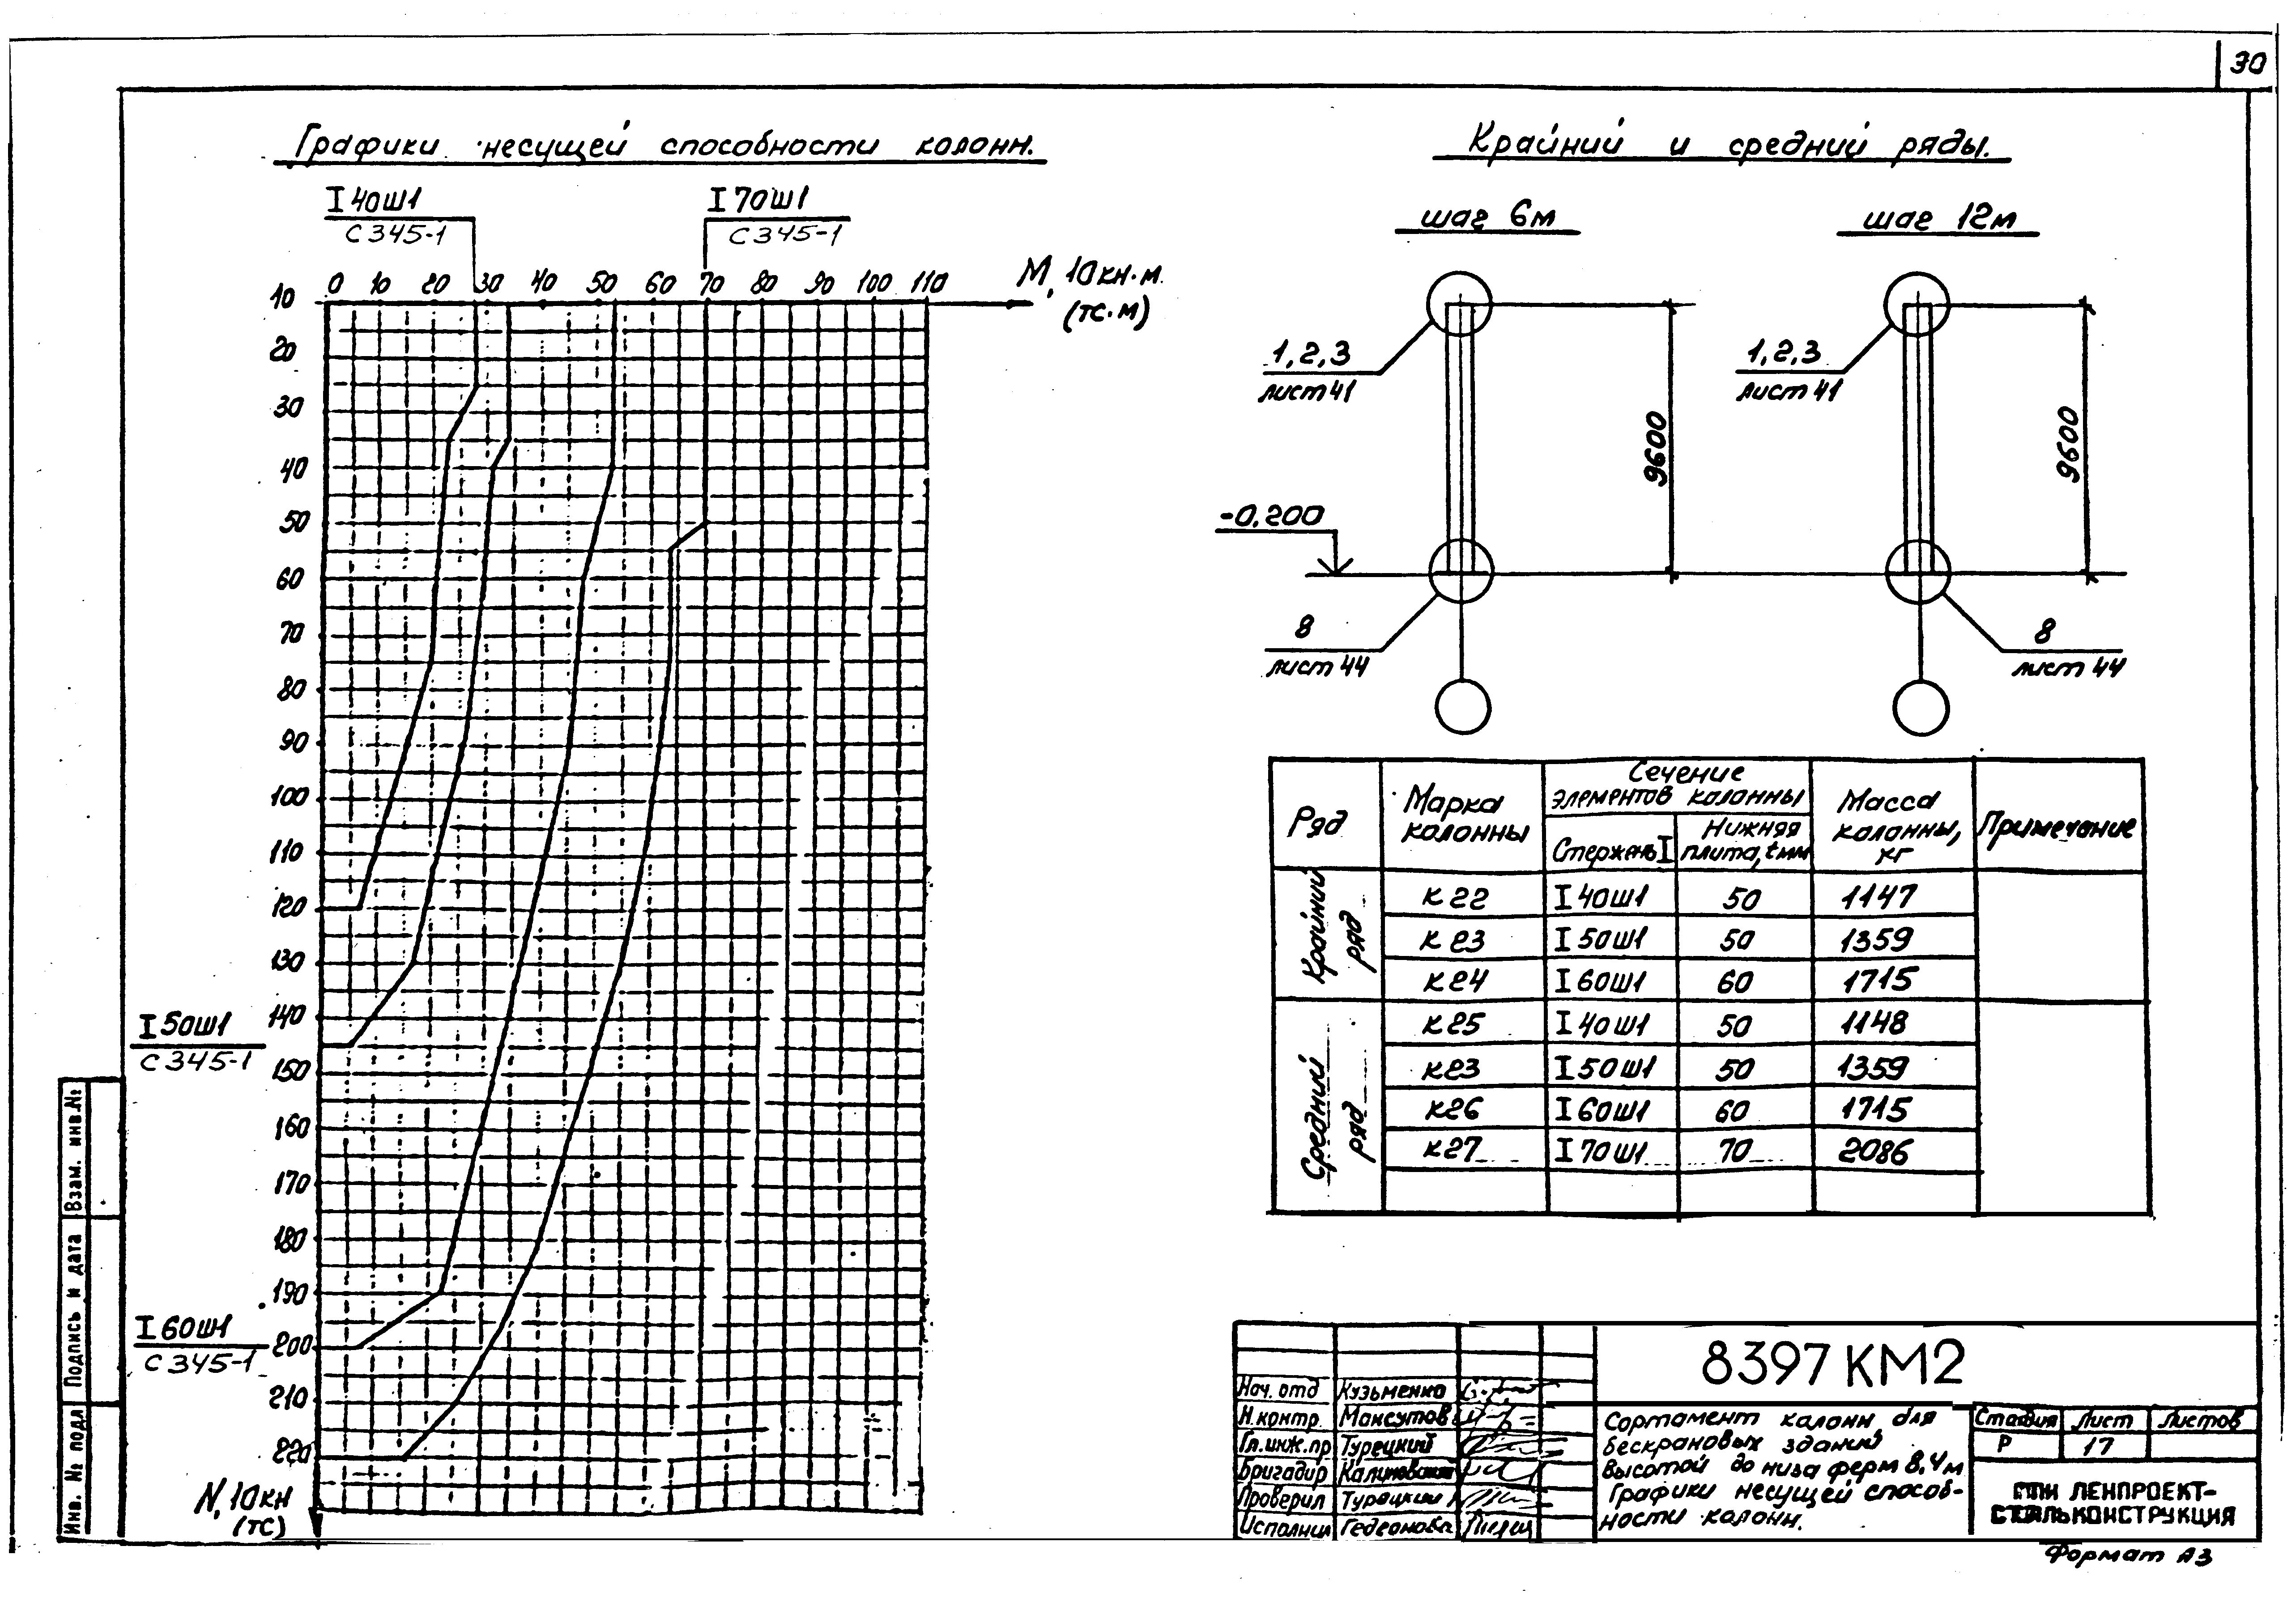 30
Графики несущей способности колонн.
I 40Ш1
С345-1
I 70Ш1
С345-1
0 10 20 30 40 50 60 70 80 90 100 110
М, 10кн·м.
(тс·м)
10
20
30
40
50
60
70
80
90
100
110
120
130
140
150
160
170
180
190
200
210
220
I 50Ш1
С345-1
I 60Ш1
С345-1
N, 10кн
(тс)
Крайний и средний ряды.
шаг 6м
шаг 12м
1,2,3
лист 41
1,2,3
лист 41
9600
9600
-0,200
8
лист 44
8
лист 44
Ряд
Марка колонны
Сечение элементов колонны
Стержень I
Нижняя плита, t мм
Масса колонны, кг
Примечание
Крайний ряд
К22 I 40Ш1 50 1147
К23 I 50Ш1 50 1359
К24 I 60Ш1 60 1715
Средний ряд
К25 I 40Ш1 50 1148
К23 I 50Ш1 50 1359
К26 I 60Ш1 60 1715
К27 I 70Ш1 70 2086
Взам. инв.№
Подпись и дата
Инв. № подл
8397КМ2
Нач. отд Кузьменко
Н.контр. Максутов
Гл.инж.пр Турецкий
Бригадир
Проверил Турецкий
Исполнил Гедеонова
Сортамент калонн для
бескрановых зданий
высотой до низа ферм 8,4м
Графики несущей способ-
ности колонн.
Стадия Лист Листов
Р 17
ЛЕНПРОЕКТ-
СТАЛЬКОНСТРУКЦИЯ
Формат А3